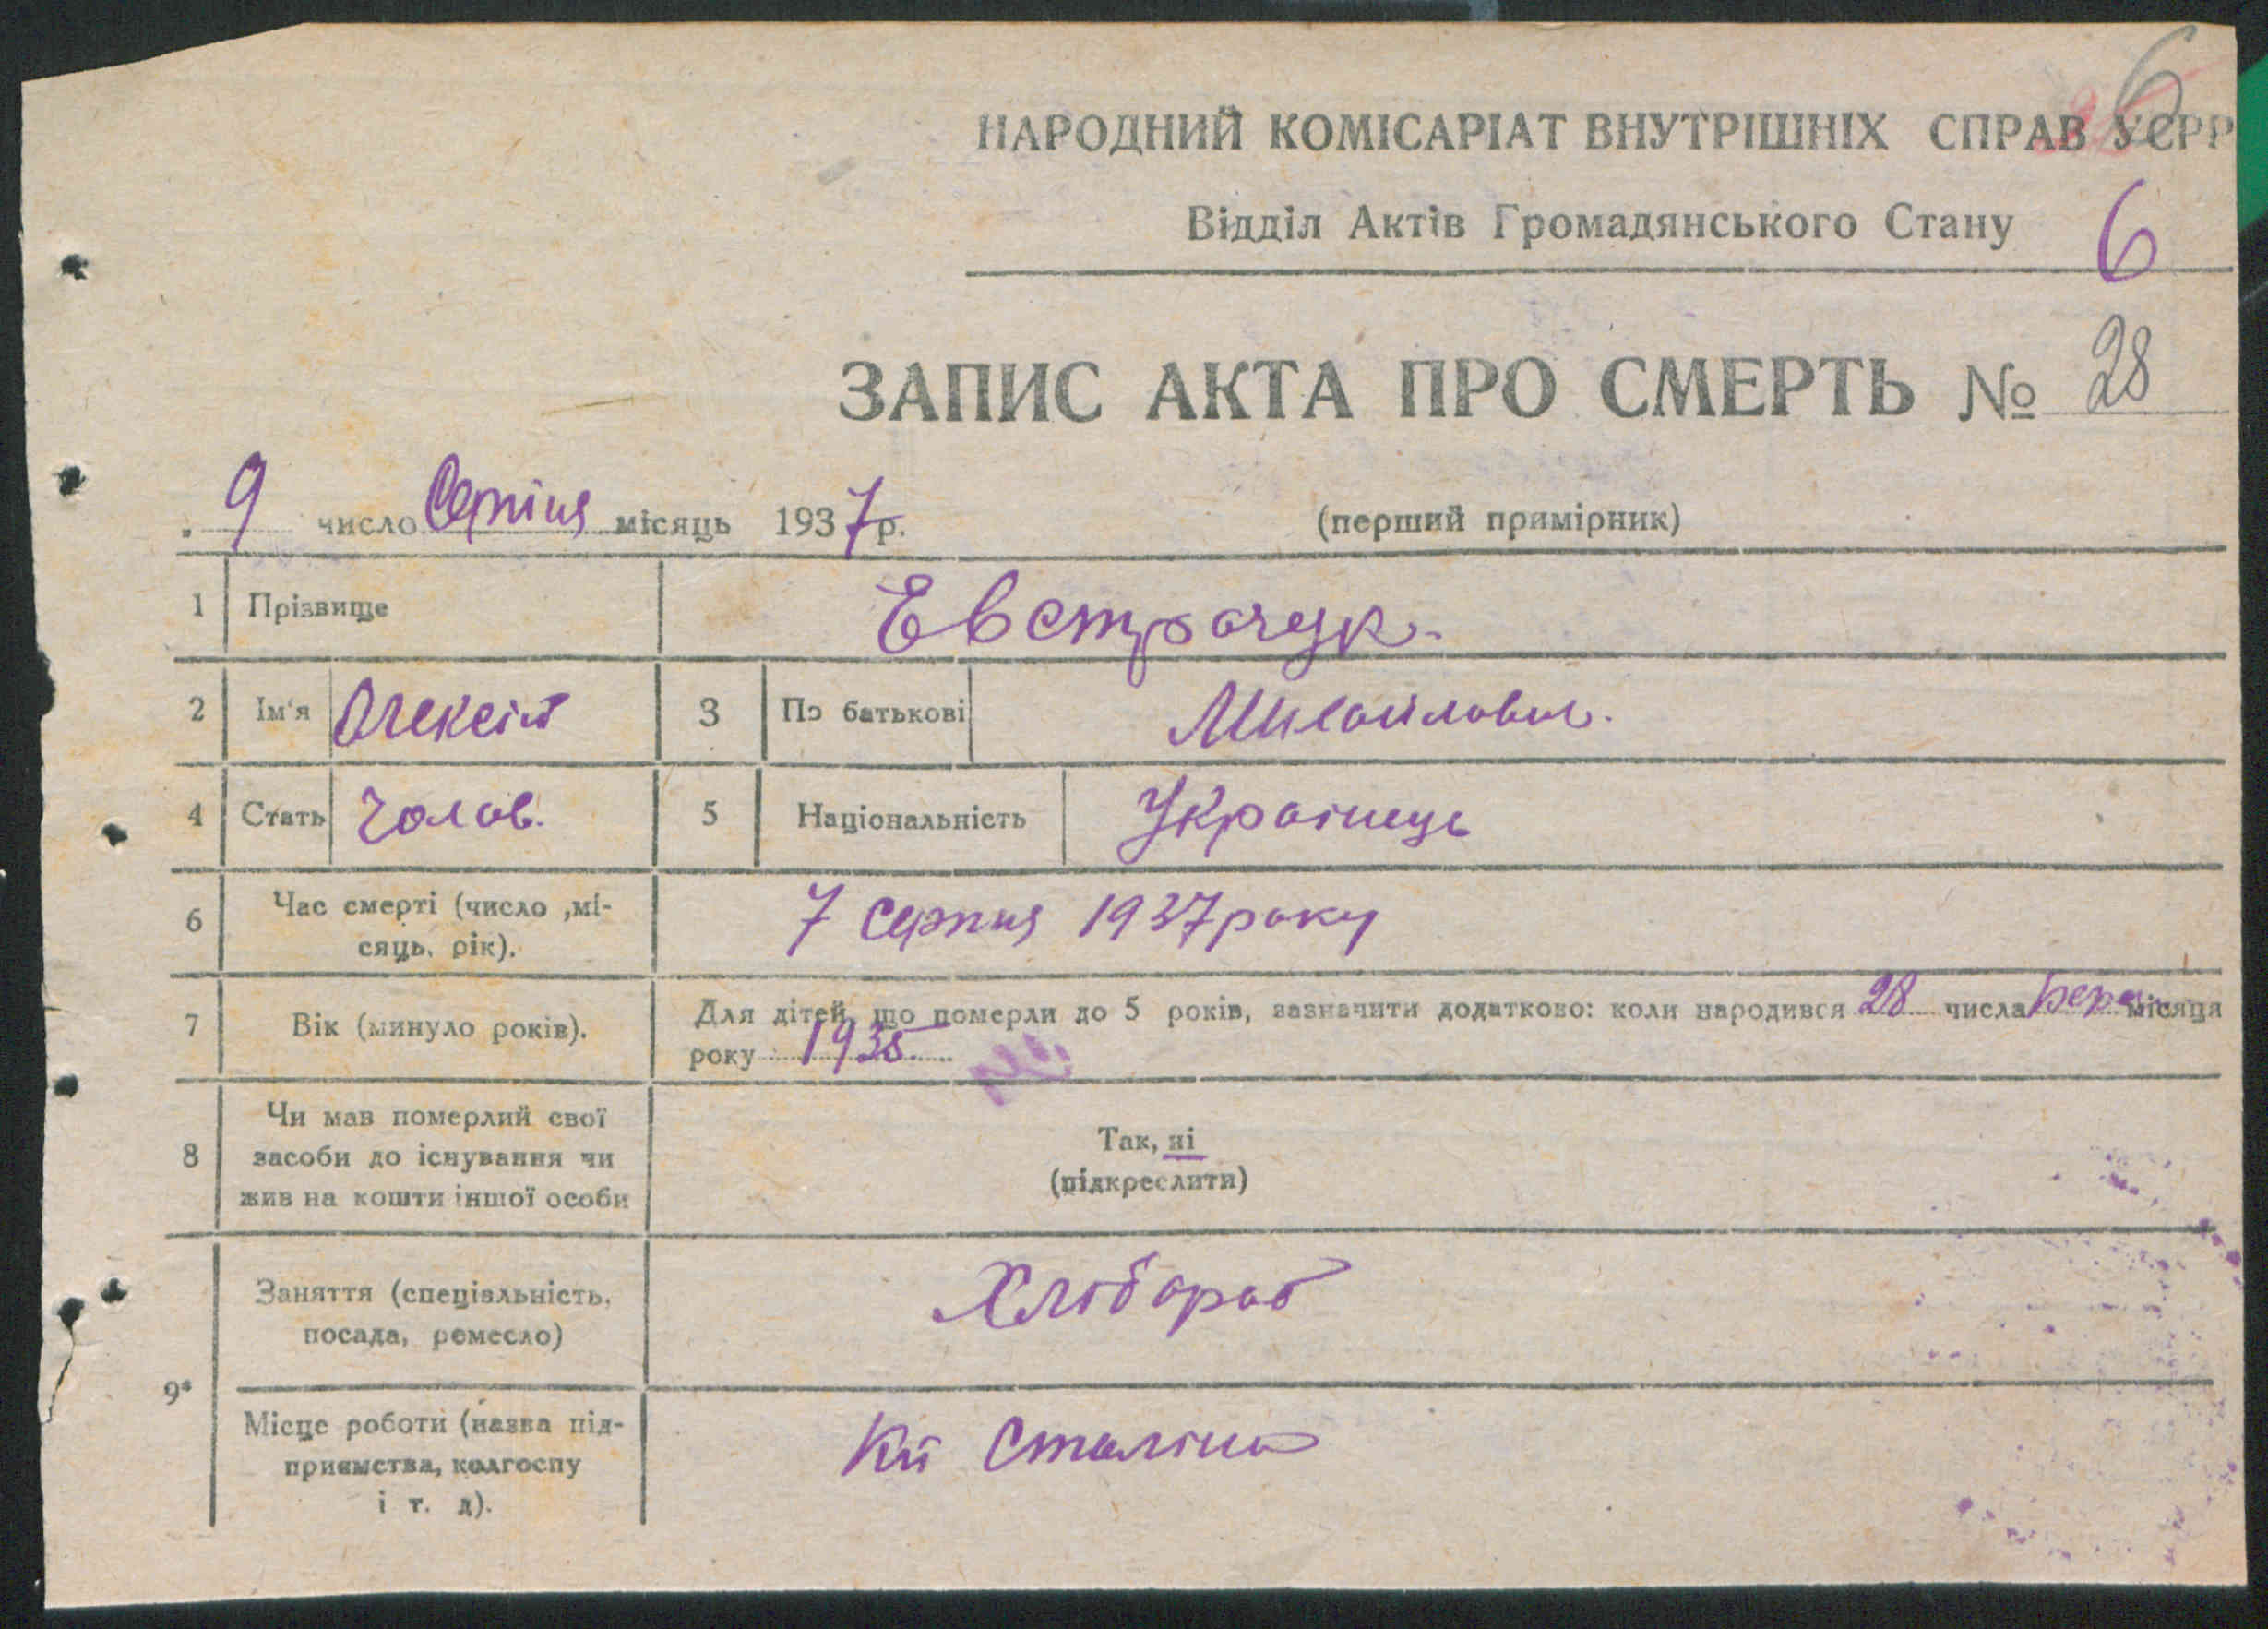 6
НАРОДНИЙ КОМІСАРІАТ ВНУТРІШНІХ СПРАВ УСРР
Відділ Актів Громадянського Стану 6
ЗАПИС АКТА ПРО СМЕРТЬ № 28
9 число Серпня місяць 1937 р. (перший примірник)
1 Прізвище Евстрачук.
2 Ім'я Олексій 3 По батькові Михайлович.
4 Стать Чолов. 5 Національність Українець
6 Час смерті (число ,мі-
сяць, рік). 7 серпня 1937 року
7 Вік (минуло років). Для дітей, що померли до 5 років, зазначити додатково: коли народився 28 числа Берез. місяця
року 1935
8 Чи мав померлий свої
засоби до існування чи
жив на кошти іншої особи
Так, ні
(підкреслити)
9* Заняття (спеціальність,
посада, ремесло) Хлібороб
Місце роботи (назва під-
приємства, колгоспу
і т. д). Кп Сталіна